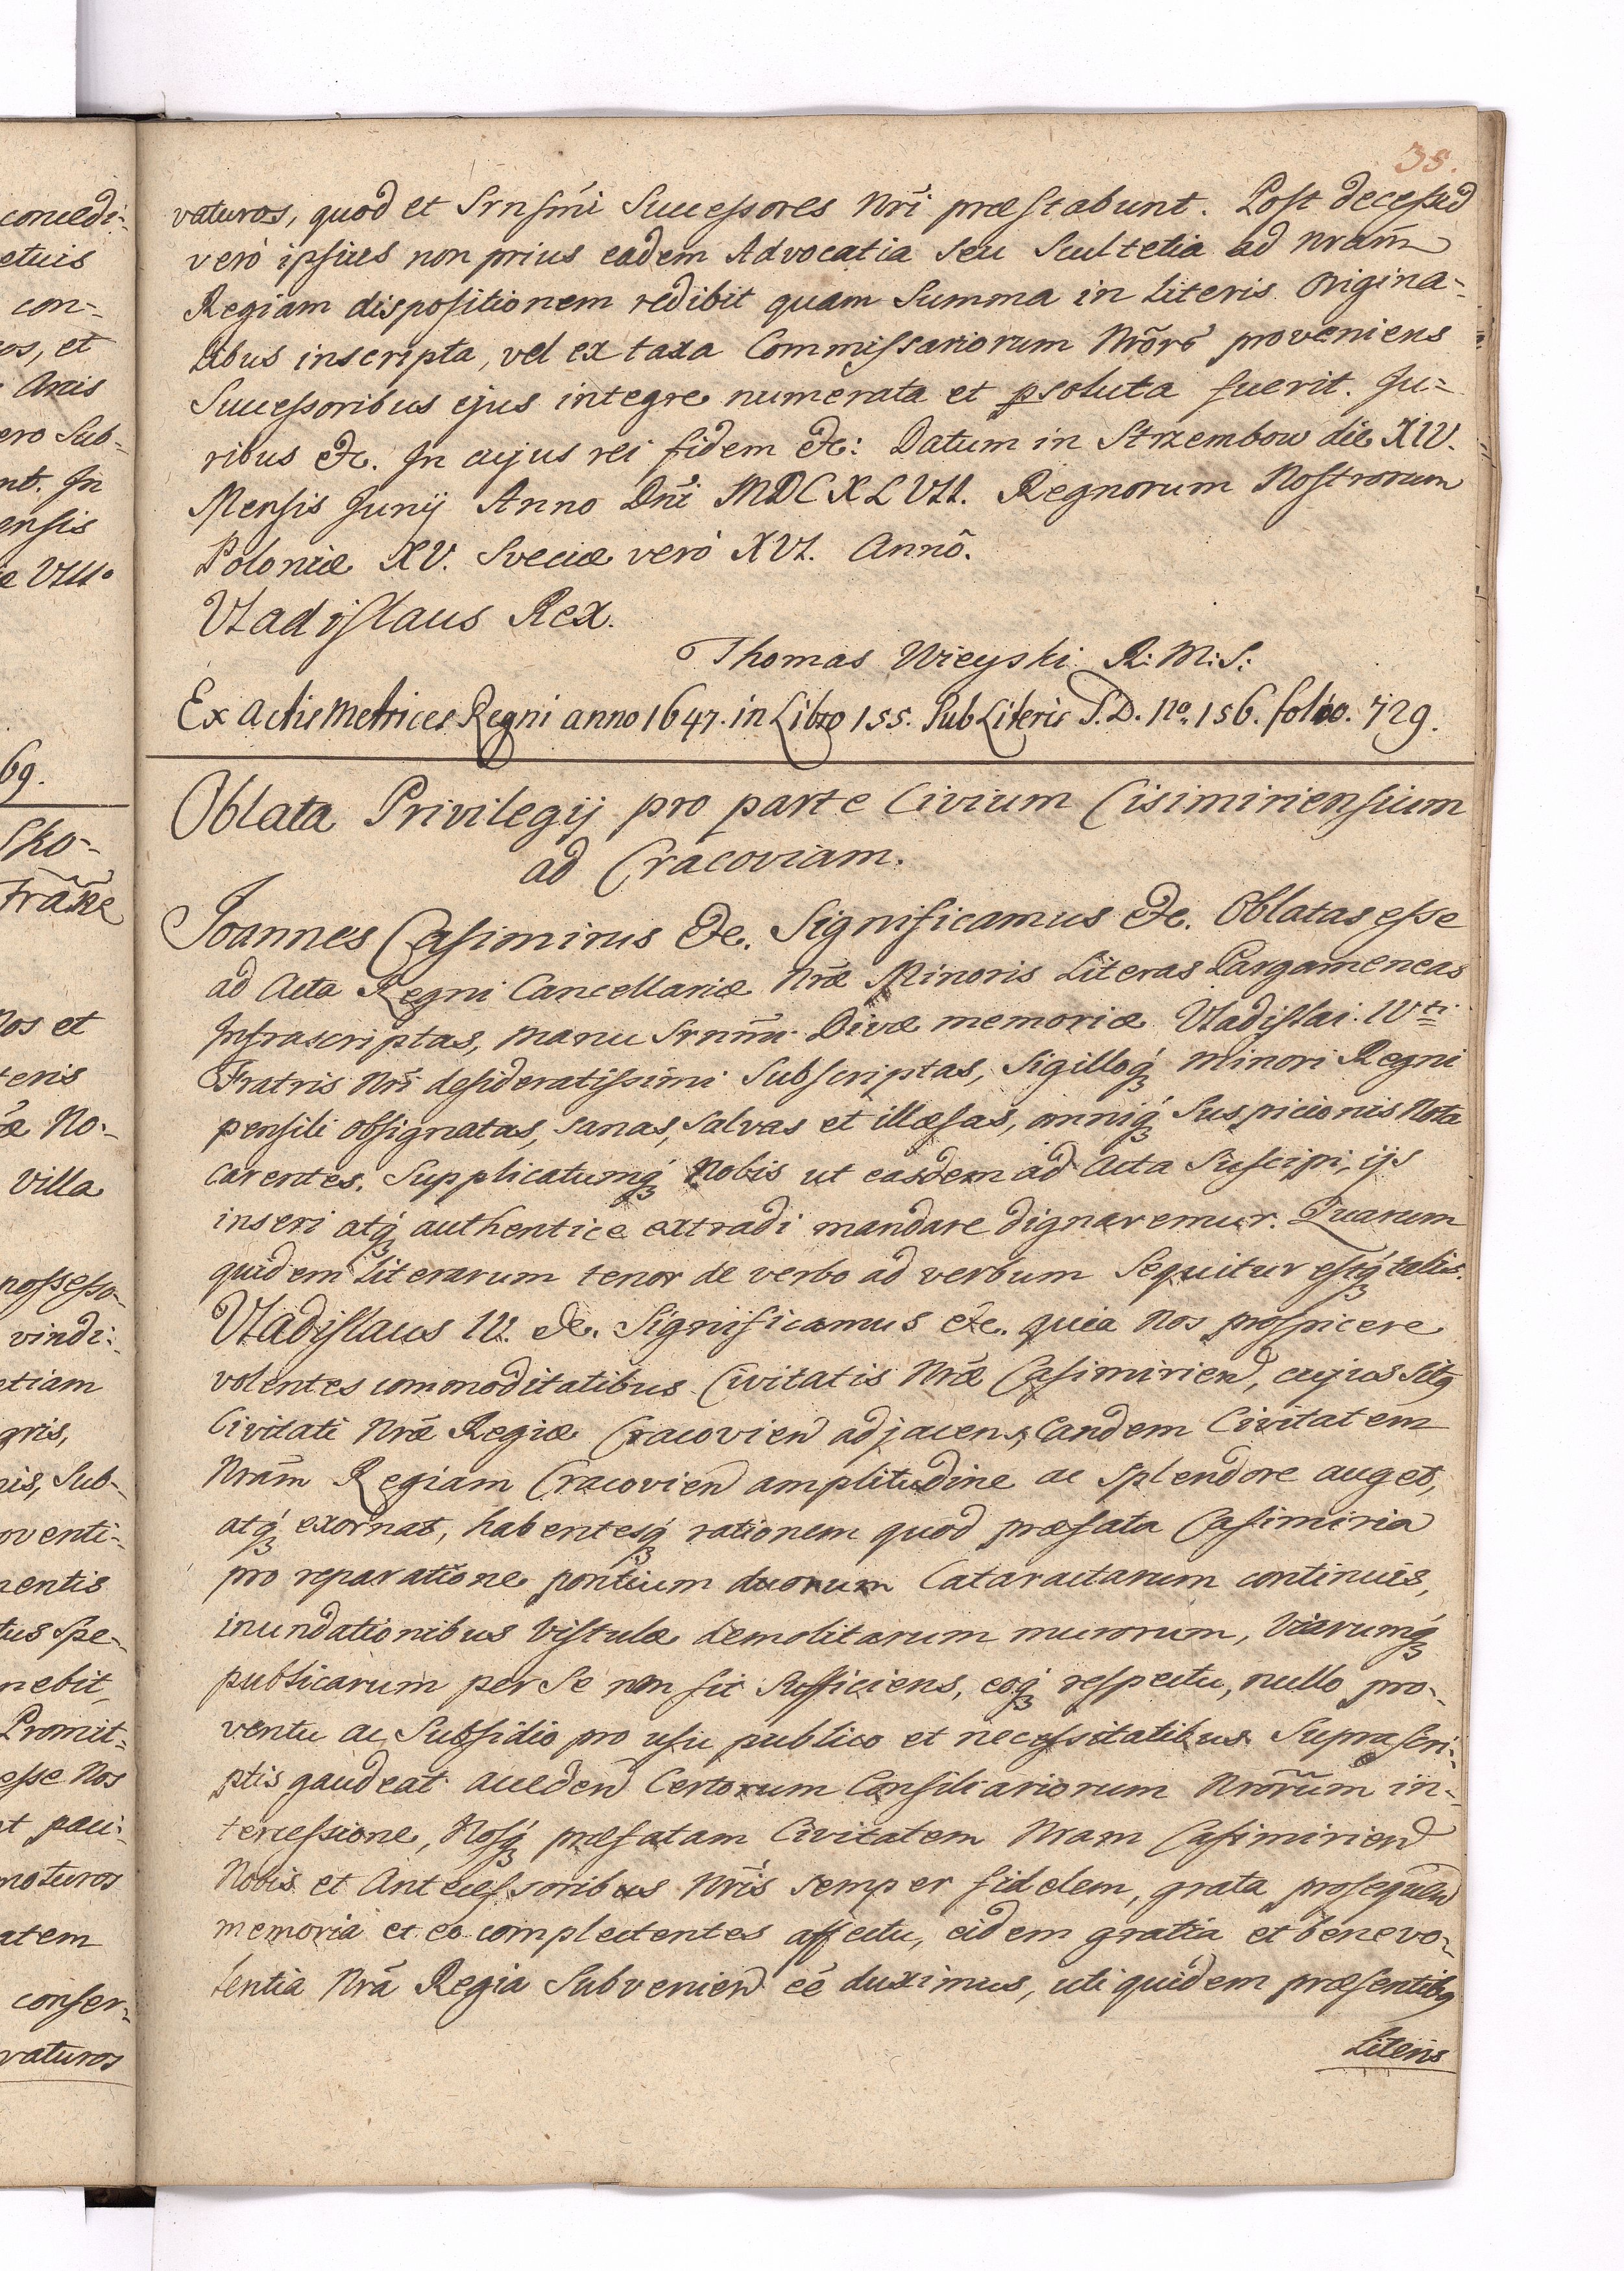 35.
vaturos, quod et Srnsmi Successores Nri præstabunt. Post decessũ
verò ipsius non prius eadem Advocatia seu Scultetia ad Nram̃
Regiam dispositionem redibit quam Summa in Literis Origina-
libus inscripta, vel ex taxa Commissariorum Nrõrũ proveniens
Successoribus ejus integre numerata et psoluta fuerit. Ju-
ribus &c. In cujus rei fidem &c: Datum in Strzembow die XIV.
Mensis Junij Anno Dñi MDCXLVII. Regnorum Nostrorum
Poloniæ XV. Sveciæ verò XVI. Annõ.
Vladislaus Rex.
Thomas Wieyski R: M: S:
Ex Actis Metrices Regni anno 1647. in Libro 155. Sub Literis P.D. No. 156. folio. 729.
Oblata Privilegij pro parte Civium Cisimiriensium
ad Cracoviam.
Joannes Casimirus &c. Significamus &c. Oblatas esse
ad Acta Regni Cancellariæ Nræ Minoris Literas Pargameneas
Infrascriptas, manu Srnmi Divæ memoriæ Vladislai IV ti
Fratris Nri desideratissimi Subscriptas, Sigilloq́ Minori Regni
pensili obsignatas, sanas, salvas et illæsas, omniq́ Suspicionis Nota
carentes. Supplicatumq́ Nobis ut easdem ad Acta Suscipi, ijs
inseri atq́ authentice extradi mandare dignaremur. Quarum
quidem Literarum tenor de verbo ad verbum Sequitur estq́ talis.
Vladislaus IV. &c. Significamus &c. quia Nos prospicere
volentes commoditatibus Civitatis Nræ Casimirien, cujus Sitq
Civitati Nræ Regiæ Cracovien adjacens, Eandem Civitatem
Nram̃ Regiam Cracovien amplitudine ac splendore auget,
atq́ exornat, habentesq́ rationem quod præfata Casimiria
pro reparatione pontium duorum Cataractarum continuis,
inundationibus Vistulæ demolitarum murorum, Viarumq́
publicarum per Se non sit Sufficiens, eoq́ respectu, nullo pro-
ventu ac Subsidio pro usu publico et necessitatibus Suprascri-
ptis gaudeat acceden Certorum Consiliariorum Nrorũm in-
tercessione, Nosq́ præfatam Civitatem Nram Casimirien
Nobis et Antecessoribus Nris semper fidelem, grata prosequen
memoria et eo complectentes affectu, eidem gratia et benevo-
lentia Nrã Regia Subvenien eé duximus, uti quidem præsentibq
Literis